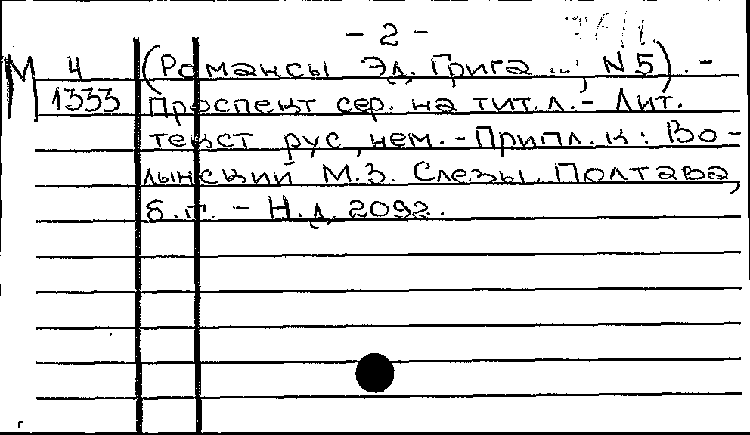 - 2 -
М 4 (Романсы Эд. Грига ...; N 5). -
1333 Проспект сер. на тит. л. - Лит.
текст рус., нем. - Припл. к: Во-
лынский М.З. Слезы. Полтава,
б.г. - Н.д. 2092.